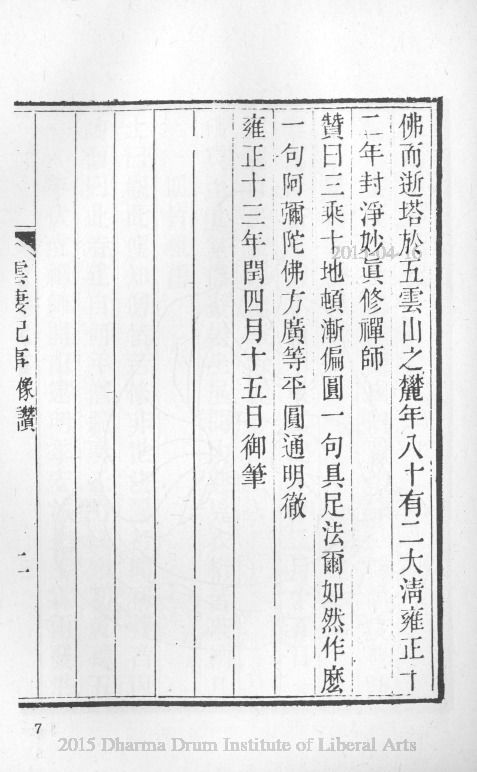 佛而逝塔於五雲山之麓年八十有二大淸雍正十
二年封淨妙眞修禪師
贊曰三乘十地頓漸偏圓一句具足法爾如然作麽
一句阿彌陀佛方廣等平圓通明徹
雍正十三年閏四月十五日御筆
雲棲紀事 像讚 二
7
2015-04-16
2015 Dharma Drum Institute of Liberal Arts